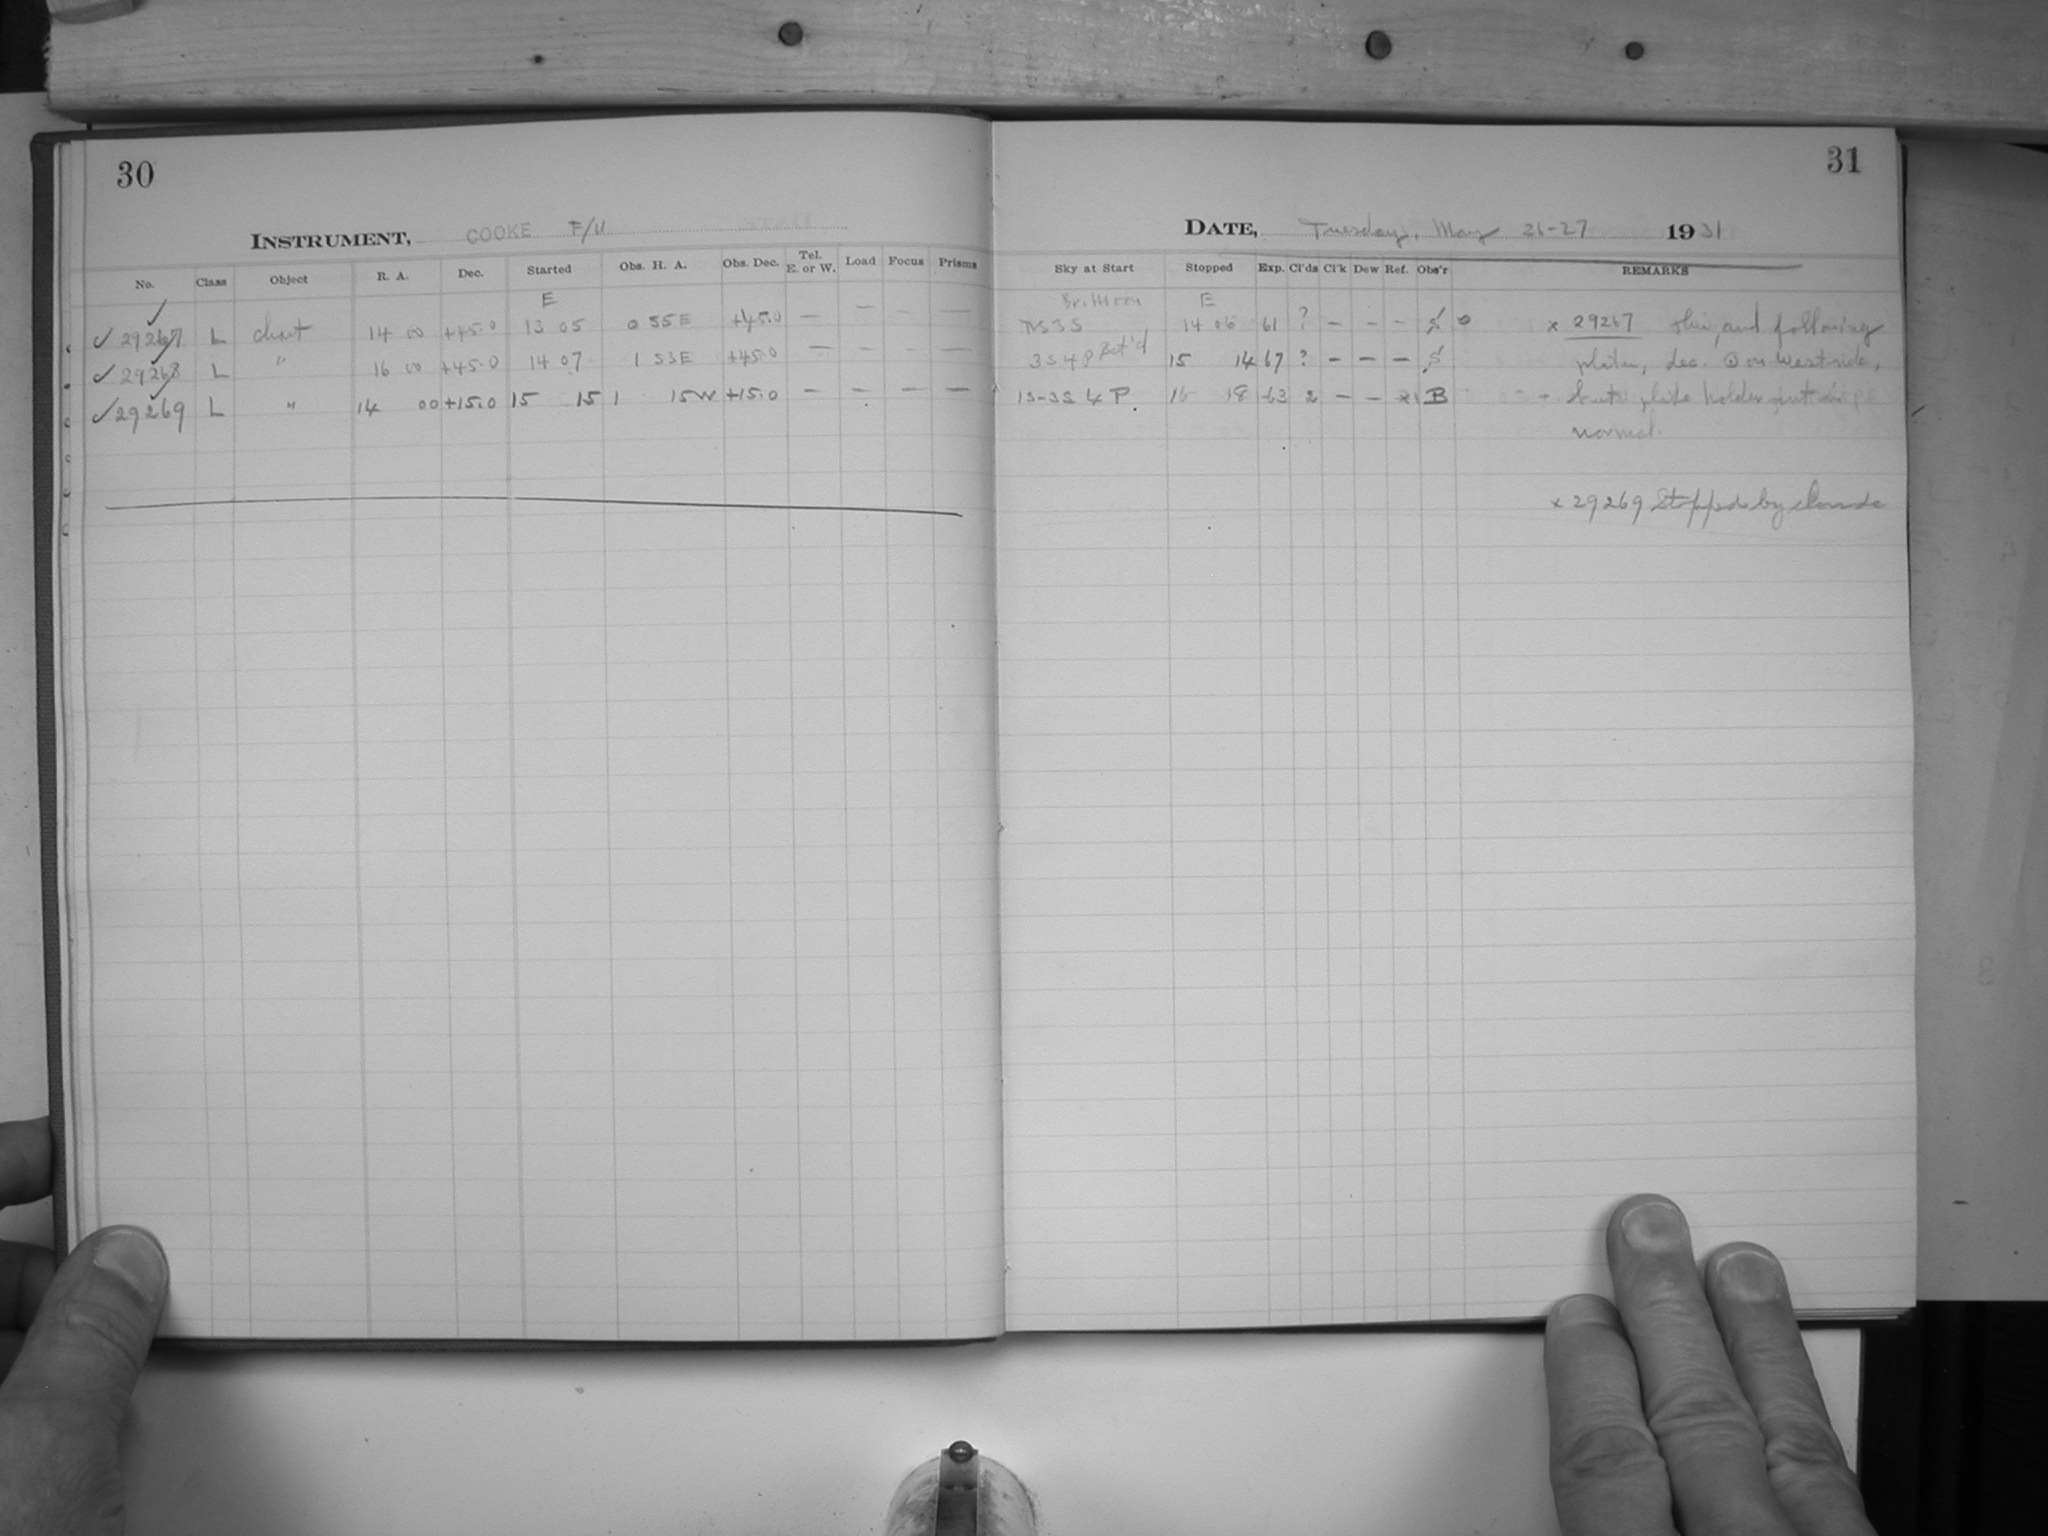 30
INSTRUMENT, COOKE F/U
No. Class Object R. A. Dec. Started Obs. H. A. Obs. Dec. Tel. E. or W. Load Focus Prisms
E
✓ 29267 L chart 14 00 +45.0 13 05 0 55E +45.0 — — — —
✓ 29268 L " 16 00 +45.0 14 07 1 53E +45.0 — — — —
✓ 29269 L " 14 00 +15.0 15 15 1 15W +15.0 — — — —
31
DATE, Tuesday, May 26-27 1931
Sky at Start Stopped Exp. Cl'ds Cl'k Dew Ref. Obs'r REMARKS
Br. Moon E
3S 14 06 61 ? — — — x 29267 This, and following
3S 4P 15 14 67 ? — — — plates, dec. on West side,
1S-3S 4 P 16 18 63 2 — — x B but plate holder put in
normal.
x 29269 Stopped by clouds